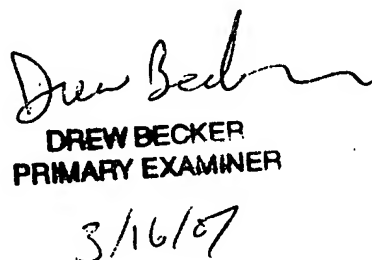 Drew Becker
DREW BECKER
PRIMARY EXAMINER
3/16/07